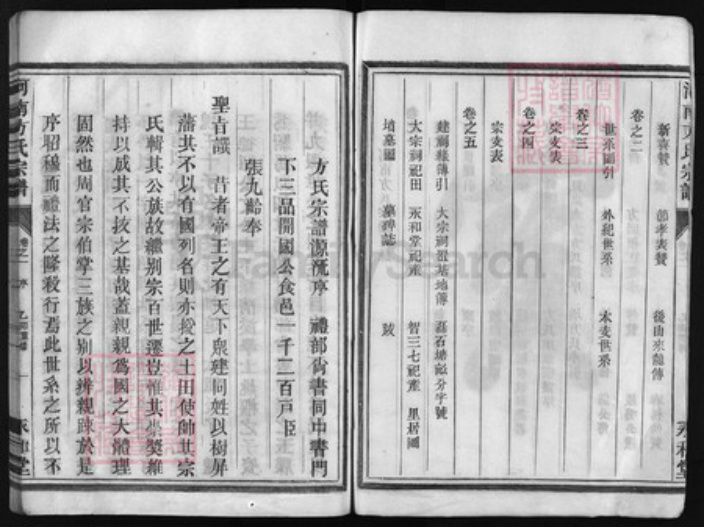 河南方氏宗譜
新喜贊 節孝表贊 後山來龍傳
卷之二
世系圖引 外紀世系 本支世系
卷之三
宗支表
卷之四
宗支表
卷之五
建祠緣傳引 大宗祠置基地傳 磊石塘畝分字號
大宗祠祀田 永和堂祀產 智三七祀產 里居圖
墳墓圖 墓碑誌 跋
永和堂
方氏宗譜源流序 禮部尙書同中書門
下三品開國公食邑一千二百戸臣
張九齡奉
聖旨譔 昔者帝王之有天下衆建同姓以樹屏
藩其不以有國列名則亦授之土田使帥其宗
氏輯其公族故繼别宗百世遷豈惟其
持以成其不抜之基哉蓋親親爲國之大體理
固然也周官宗伯掌三族之别以辨親踈於是
序昭穆而禮法之隆殺行焉此世系之所以不
河南方氏宗譜
卷之一 序
永和堂
FamilySearch